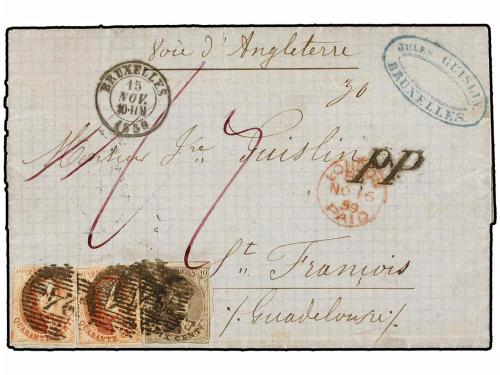 Voie d'Angleterre
JULES GUISLIN
BRUXELLES.
BRUXELLES
15
NOV.
1859
30
Monsieur Jre Guislin
PP
LONDON
NO 16
59
PAID
St François
/Guadeloupe/
QUARANTE
QUARANTE
10
DIX CENT
24